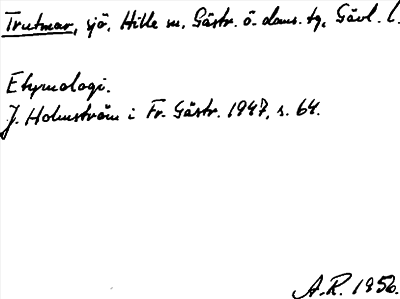 Trutmar, sjö, Hille sn. Gästr. ö. doms. tg, Gävl. l.
Etymologi.
J. Holmström i Fr. Gästr. 1947, s. 64.
A.R. 1956.